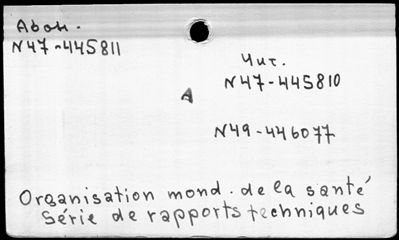 Абон.
N47-445811
Чит.
N47-445810
A
N49-446077
Organisation mond. de la santé
Série de rapports techniques